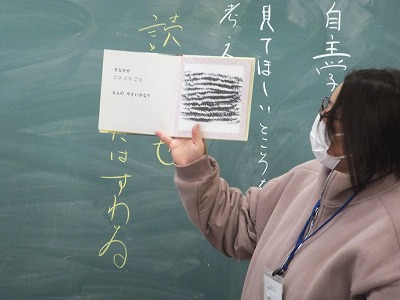 自主学
見てほしいところを
考え
読
む
たはすわゐ
せなかが
ごつ ごつ ごつ
なんの やさいかな?